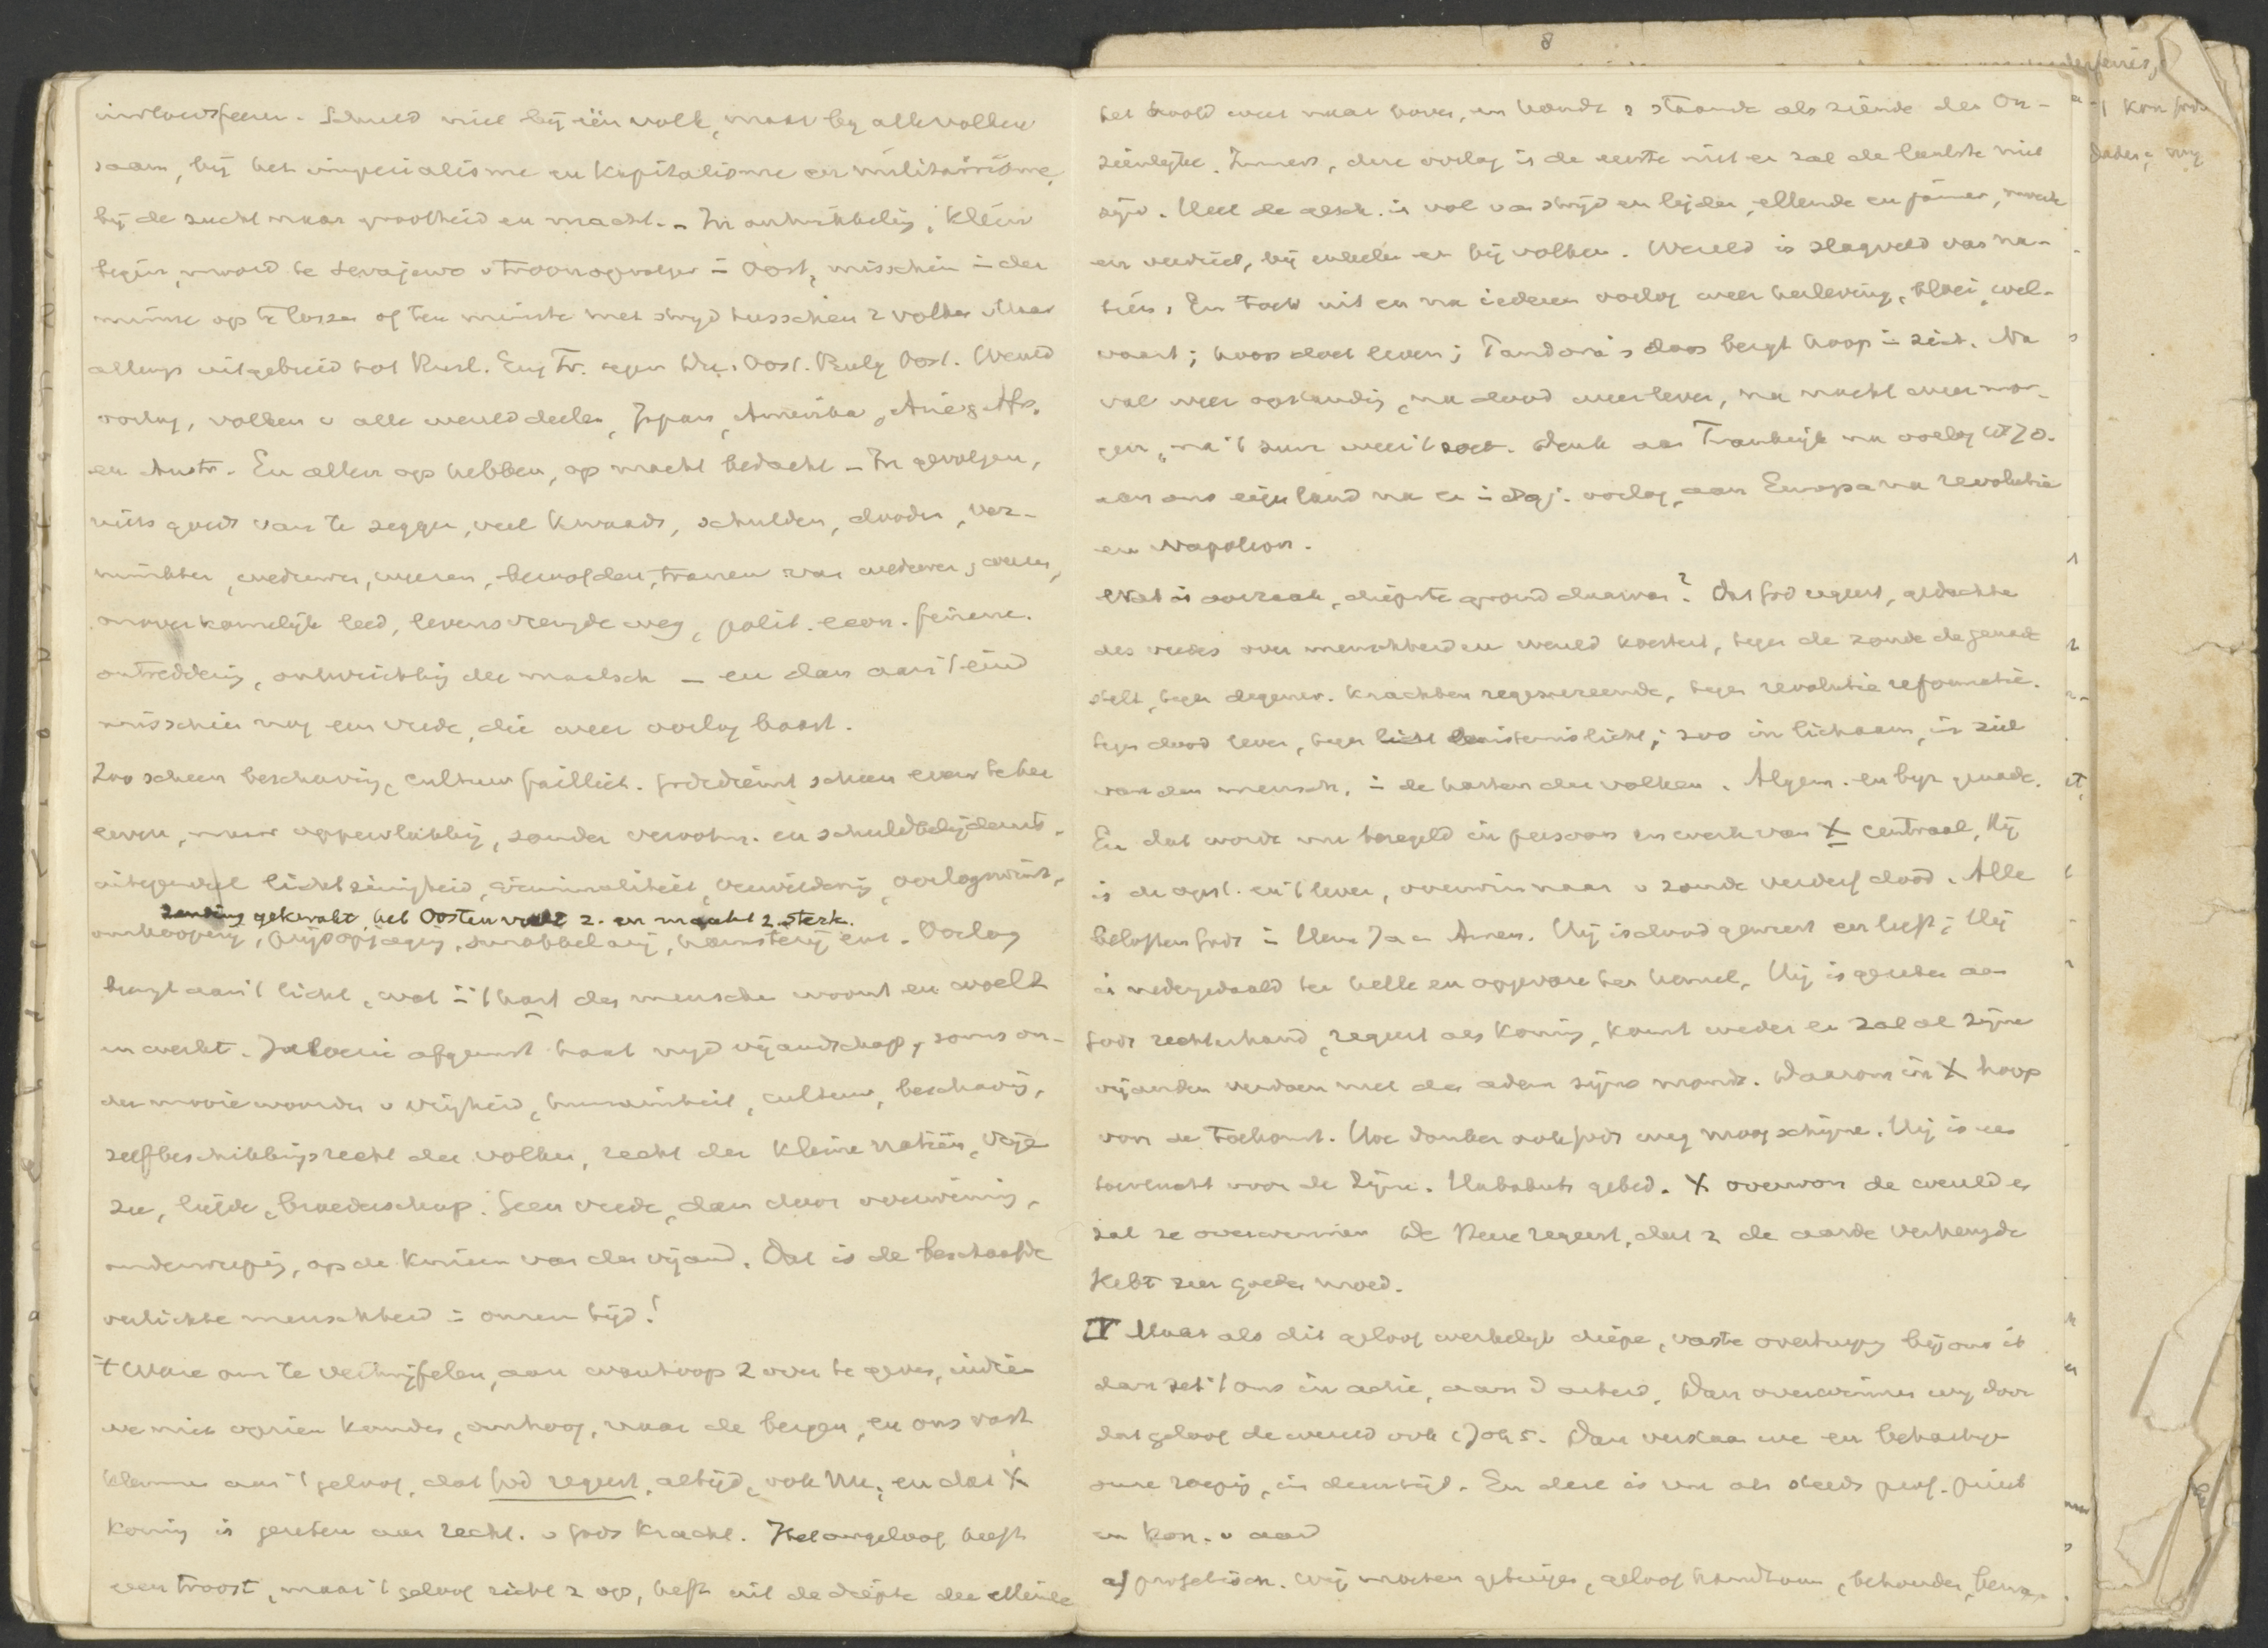 invloedsfeeren. Schuld niet bij één volk, maar bij alle volken
saam, bij het imperialisme en kapitalisme en militairisme,
bij de zucht naar grootheid en macht. - In ontwikkeling, klein
begin, moord te Serajewo v troonopvolger = Oost, misschien = der
minne op te lossen of ten minste met strijd tusschen 2 volken. Maar
allengs uitgebreid tot Rusl. Eng Fr. tegen Du. Oost. Bulg Oost. Wereld
oorlog, volken v alle werelddeelen, Japan, Amerika, Azië & Afr.
en Austr. En allen op hebben, op macht bedacht - In gevolgen,
niets goeds van te zeggen, veel kwaads, schulden, dooden, ver-
minkten, weduwen, weezen, beroofden, tranen van weduwen, weezen,
onuitsprekelijk leed, levensvreugde weg, polit. econ. financ.
ontreddering, ontwrichting der maatsch - en dan aan 't eind
misschien nog een vrede, die weer oorlog baart.
Zoo scheen beschaving, cultuur failliet. Godsdienst scheen even te her
leven, maar oppervlakkig, zonder verootm. en schuldbelijdenis.
integendeel lichtzinnigheid, criminaliteit, verwildering, oorlogswinst,
Zending geknakt, het Oosten voelt z. en maakt z. sterk.
omkooperij, prijsopjaging, smokkelarij, hamsterij enz. Oorlog
brengt aan 't licht, wat = 't hart des menschen woont en woelt
en werkt. Jaloezie afgunst haat nijd vijandschap, soms on-
der mooie woorden v vrijheid, humaniteit, cultuur, beschaving,
zelfbeschikkingsrecht der volken, recht der kleine natiën, vrije
zee, liefde, broederschap. Geen vrede, dan door overwinning,
onderwerping, op de knieën van den vijand. Dat is de beschaafde
verlichte menschheid = onzen tijd!
't Ware om te vertwijfelen, aan wanhoop z over te geven, indien
we niet opzien konden, omhoog, naar de bergen, en ons vast
klemmen aan 't geloof, dat God regeert, altijd, ook nu, en dat X
koning is gezeten aan recht. v Gods kracht. Het ongeloof heeft
geen troost, maar 't geloof richt z op, heft uit de diepte der ellende
8
het hoofd weer naar boven, en houdt z staande als ziende den On-
zienlijke. Immers, deze oorlog is de eerste niet en zal de laatste niet
zijn. Heel de gesch. is vol van strijd en lijden, ellende en jammer, smart
en verdriet, bij enkelen en bij volken. Wereld is slagveld van na-
tiën. En toch uit en na iederen oorlog weer herleving, bloei, wel-
vaart; hoop doet leven; Pandora's doos bergt hoop in zich. Na
val weer opstanding, na dood weer leven, na nacht weer mor-
gen, na 't zuur weer 't zoet. Denk aan Frankrijk na oorlog 1870.
aan ons eigen land na en = 80 j. oorlog, aan Europa na revolutie
en Napoleon.
Wat is oorzaak, diepste grond daarvan? Dat God regeert, gedachte
des vredes over menschheid en wereld koestert, tegen de zonde de genade
stelt, tegen degener. krachten regenereerende, tegen revolutie reformatie.
tegen dood leven, tegen duisternis licht; zoo in lichaam, in ziel
van den mensch, = de harten der volken. Algem. en byz genade.
En dat wordt nu bezegeld in persoon en werk van X centraal, Hij
is de opst. en 't leven, overwinnaar v zonde verderf dood. Alle
beloften Gods = Hem Ja en Amen. Hij is dood geweest en leeft; Hij
is nedergedaald ter helle en opgevaren ten hemel, Hij is gezeten aan
Gods rechterhand, regeert als Koning, komt weder en zal al zijne
vijanden verdoen met den adem zijns monds. Daarom in X hoop
voor de toekomst. Hoe donker ook Gods weg moog schijnen. Hij is een
toevlucht voor de Zijnen. Habakuks gebed. X overwon de wereld en
zal ze overwinnen De Heere regeert, dat z de aarde verheuge
Hebt zeer goeden moed.
IV Maar als dit geloof werkelijk diepe, vaste overtuiging bij ons is
dan zet 't ons in actie, aan d arbeid. Dan overwinnen wij door
dat geloof de wereld ook 1 Joh 5. Dan verstaan we en behartigen
onze roeping, in dezen tijd. En deze is nu als steeds prof. priest
en kon. v aard
a) profetisch. Wij moeten getuigen, geloof handhaven, behouden, bewa-